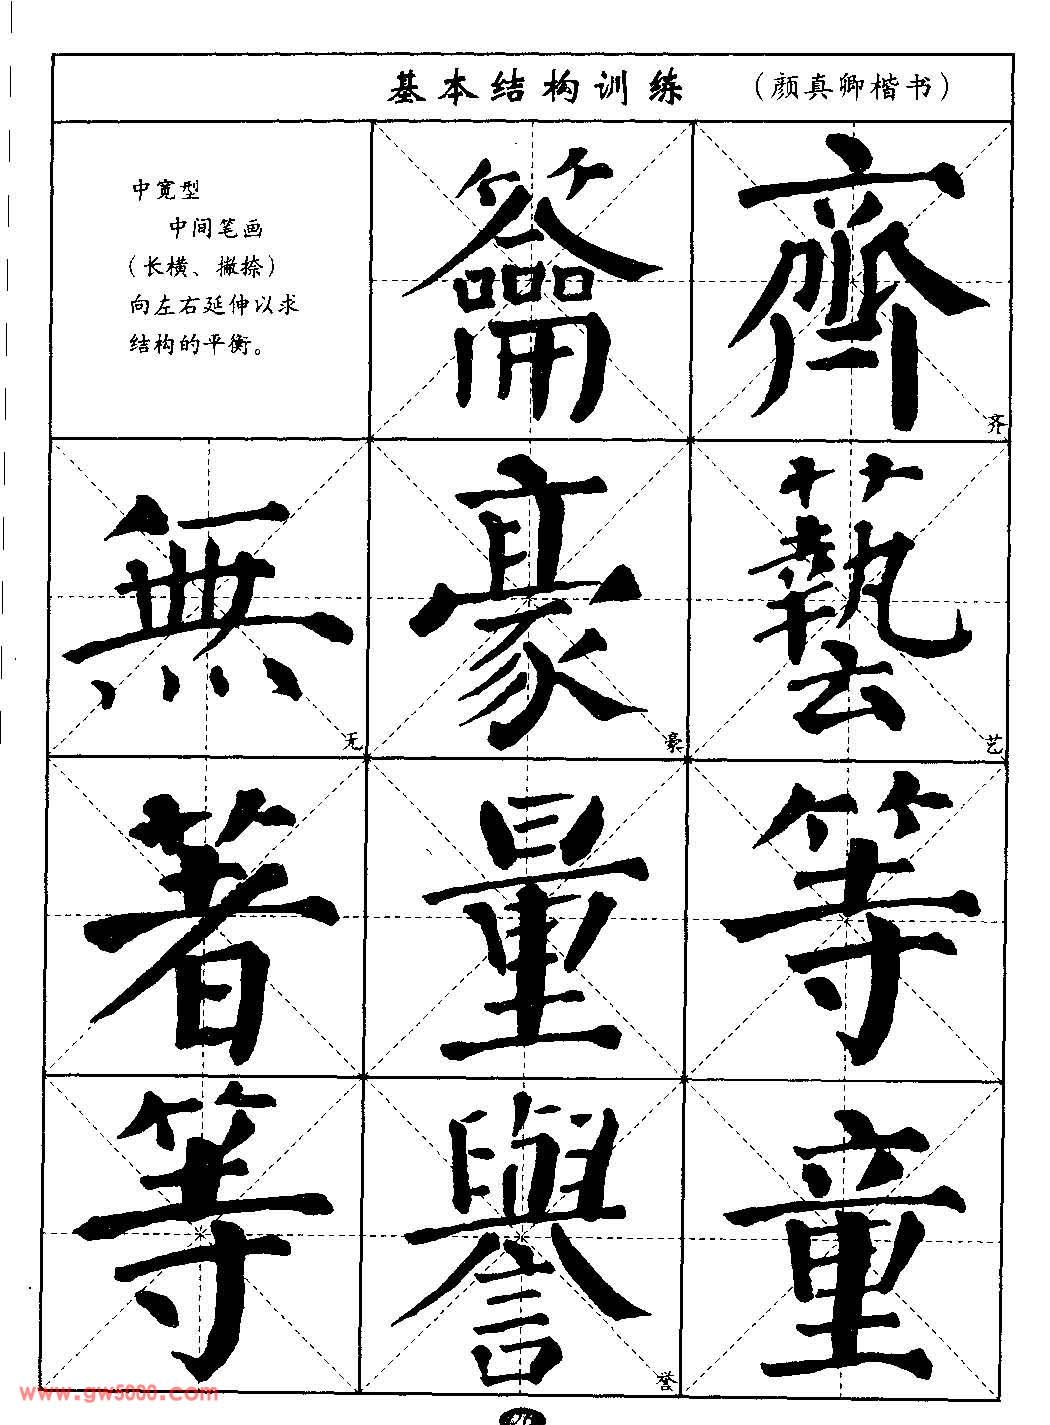 基本结构训练 (颜真卿楷书)
中宽型
中间笔画
(长横、撇捺)
向左右延伸以求
结构的平衡。
籥 齊 齐
無 无 豪 豪 藝 艺
著 量 等
等 譽 誉 童
www.gw5000.com
26